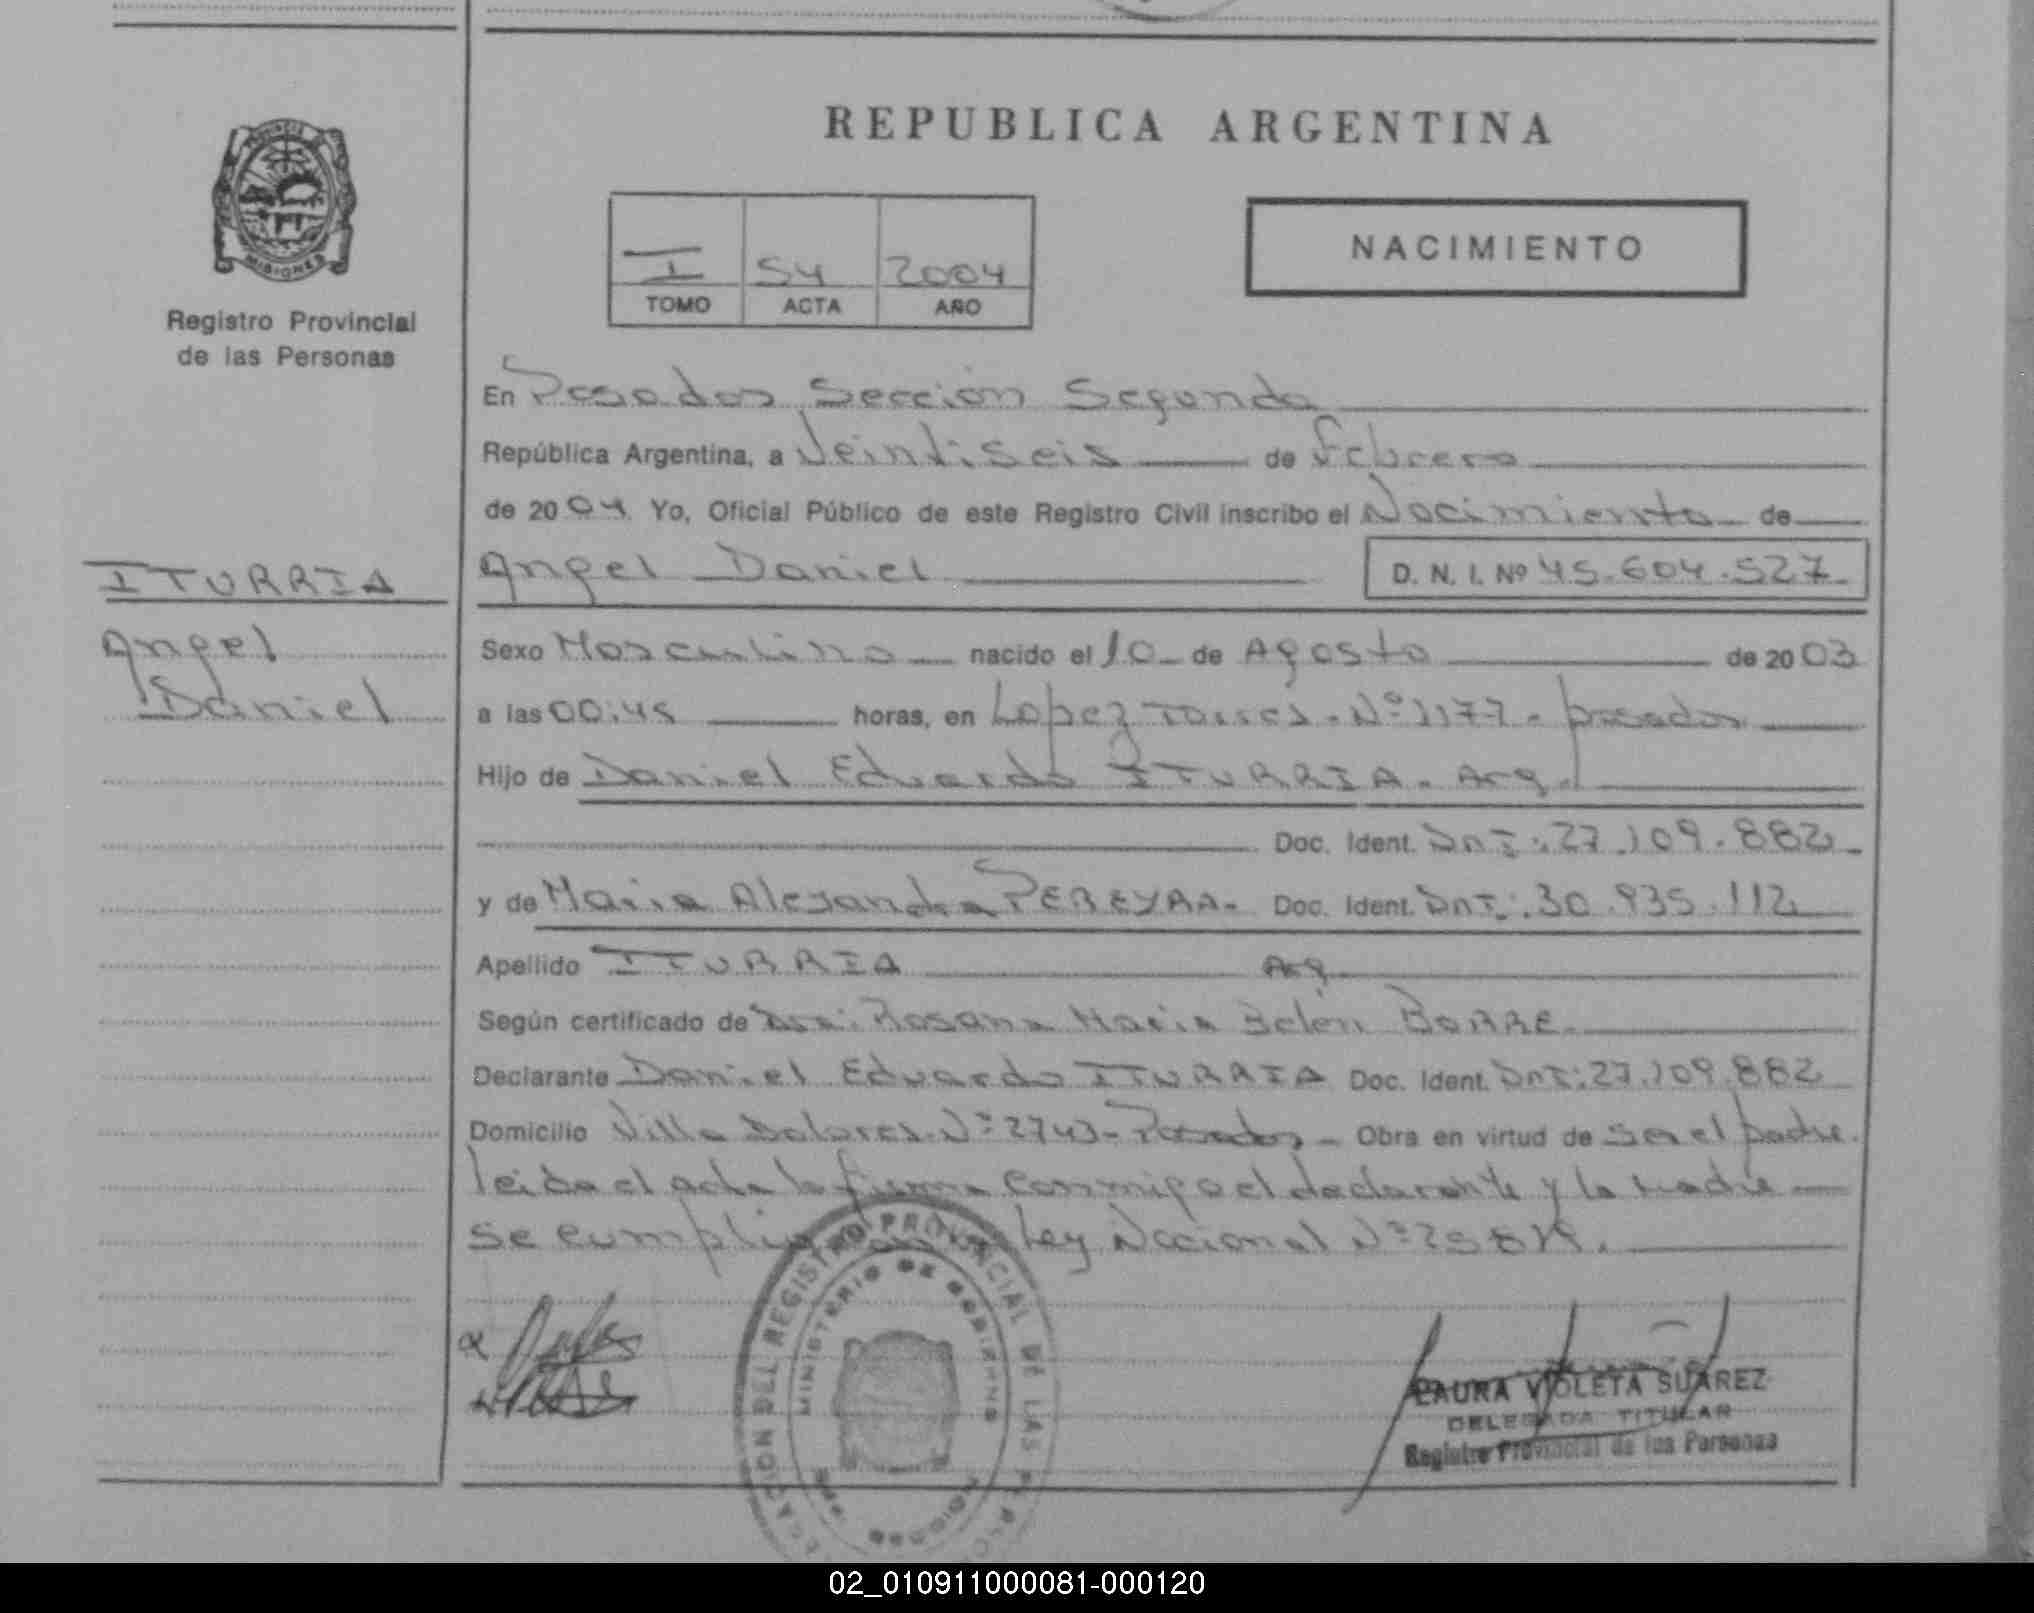 REPUBLICA ARGENTINA
PROVINCIA
MISIONES
Registro Provincial
de las Personas
I 54 2004
TOMO ACTA AÑO
NACIMIENTO
En Posadas Sección Segunda
República Argentina, a Veintiseis de Febrero
de 2004 Yo, Oficial Público de este Registro Civil inscribo el Nacimiento de
Angel Daniel
D. N. I. Nº 45.604.527
ITURRIA
Angel
Daniel
Sexo Masculino nacido el 10 de Agosto de 2003
a las 00:45 horas, en Lopez Torres. Nº 1177 - posadas
Hijo de Daniel Eduardo ITURRIA. Arg.
Doc. Ident. DNI: 27.109.882
y de Maria Alejandra PEREYRA. Doc. Ident. DNI: 30.935.112
Apellido ITURRIA Arg
Según certificado de Dra: Rosana Maria Belén BORRE
Declarante Daniel Eduardo ITURRIA Doc. Ident. DNI: 27.109.882
Domicilio Villa Dolores. Nº 2743 - Posadas - Obra en virtud de ser el padre.
leida el acta la firma conmigo el declarante y la madre
se cumplio con Ley Nacional Nº
DEL REGISTRO PROVINCIAL DE LAS
MINISTERIO DE GOBIERNO
LAURA VIOLETA SUAREZ
DELEGADA TITULAR
Registro Provincial de las Personas
02_010911000081-000120